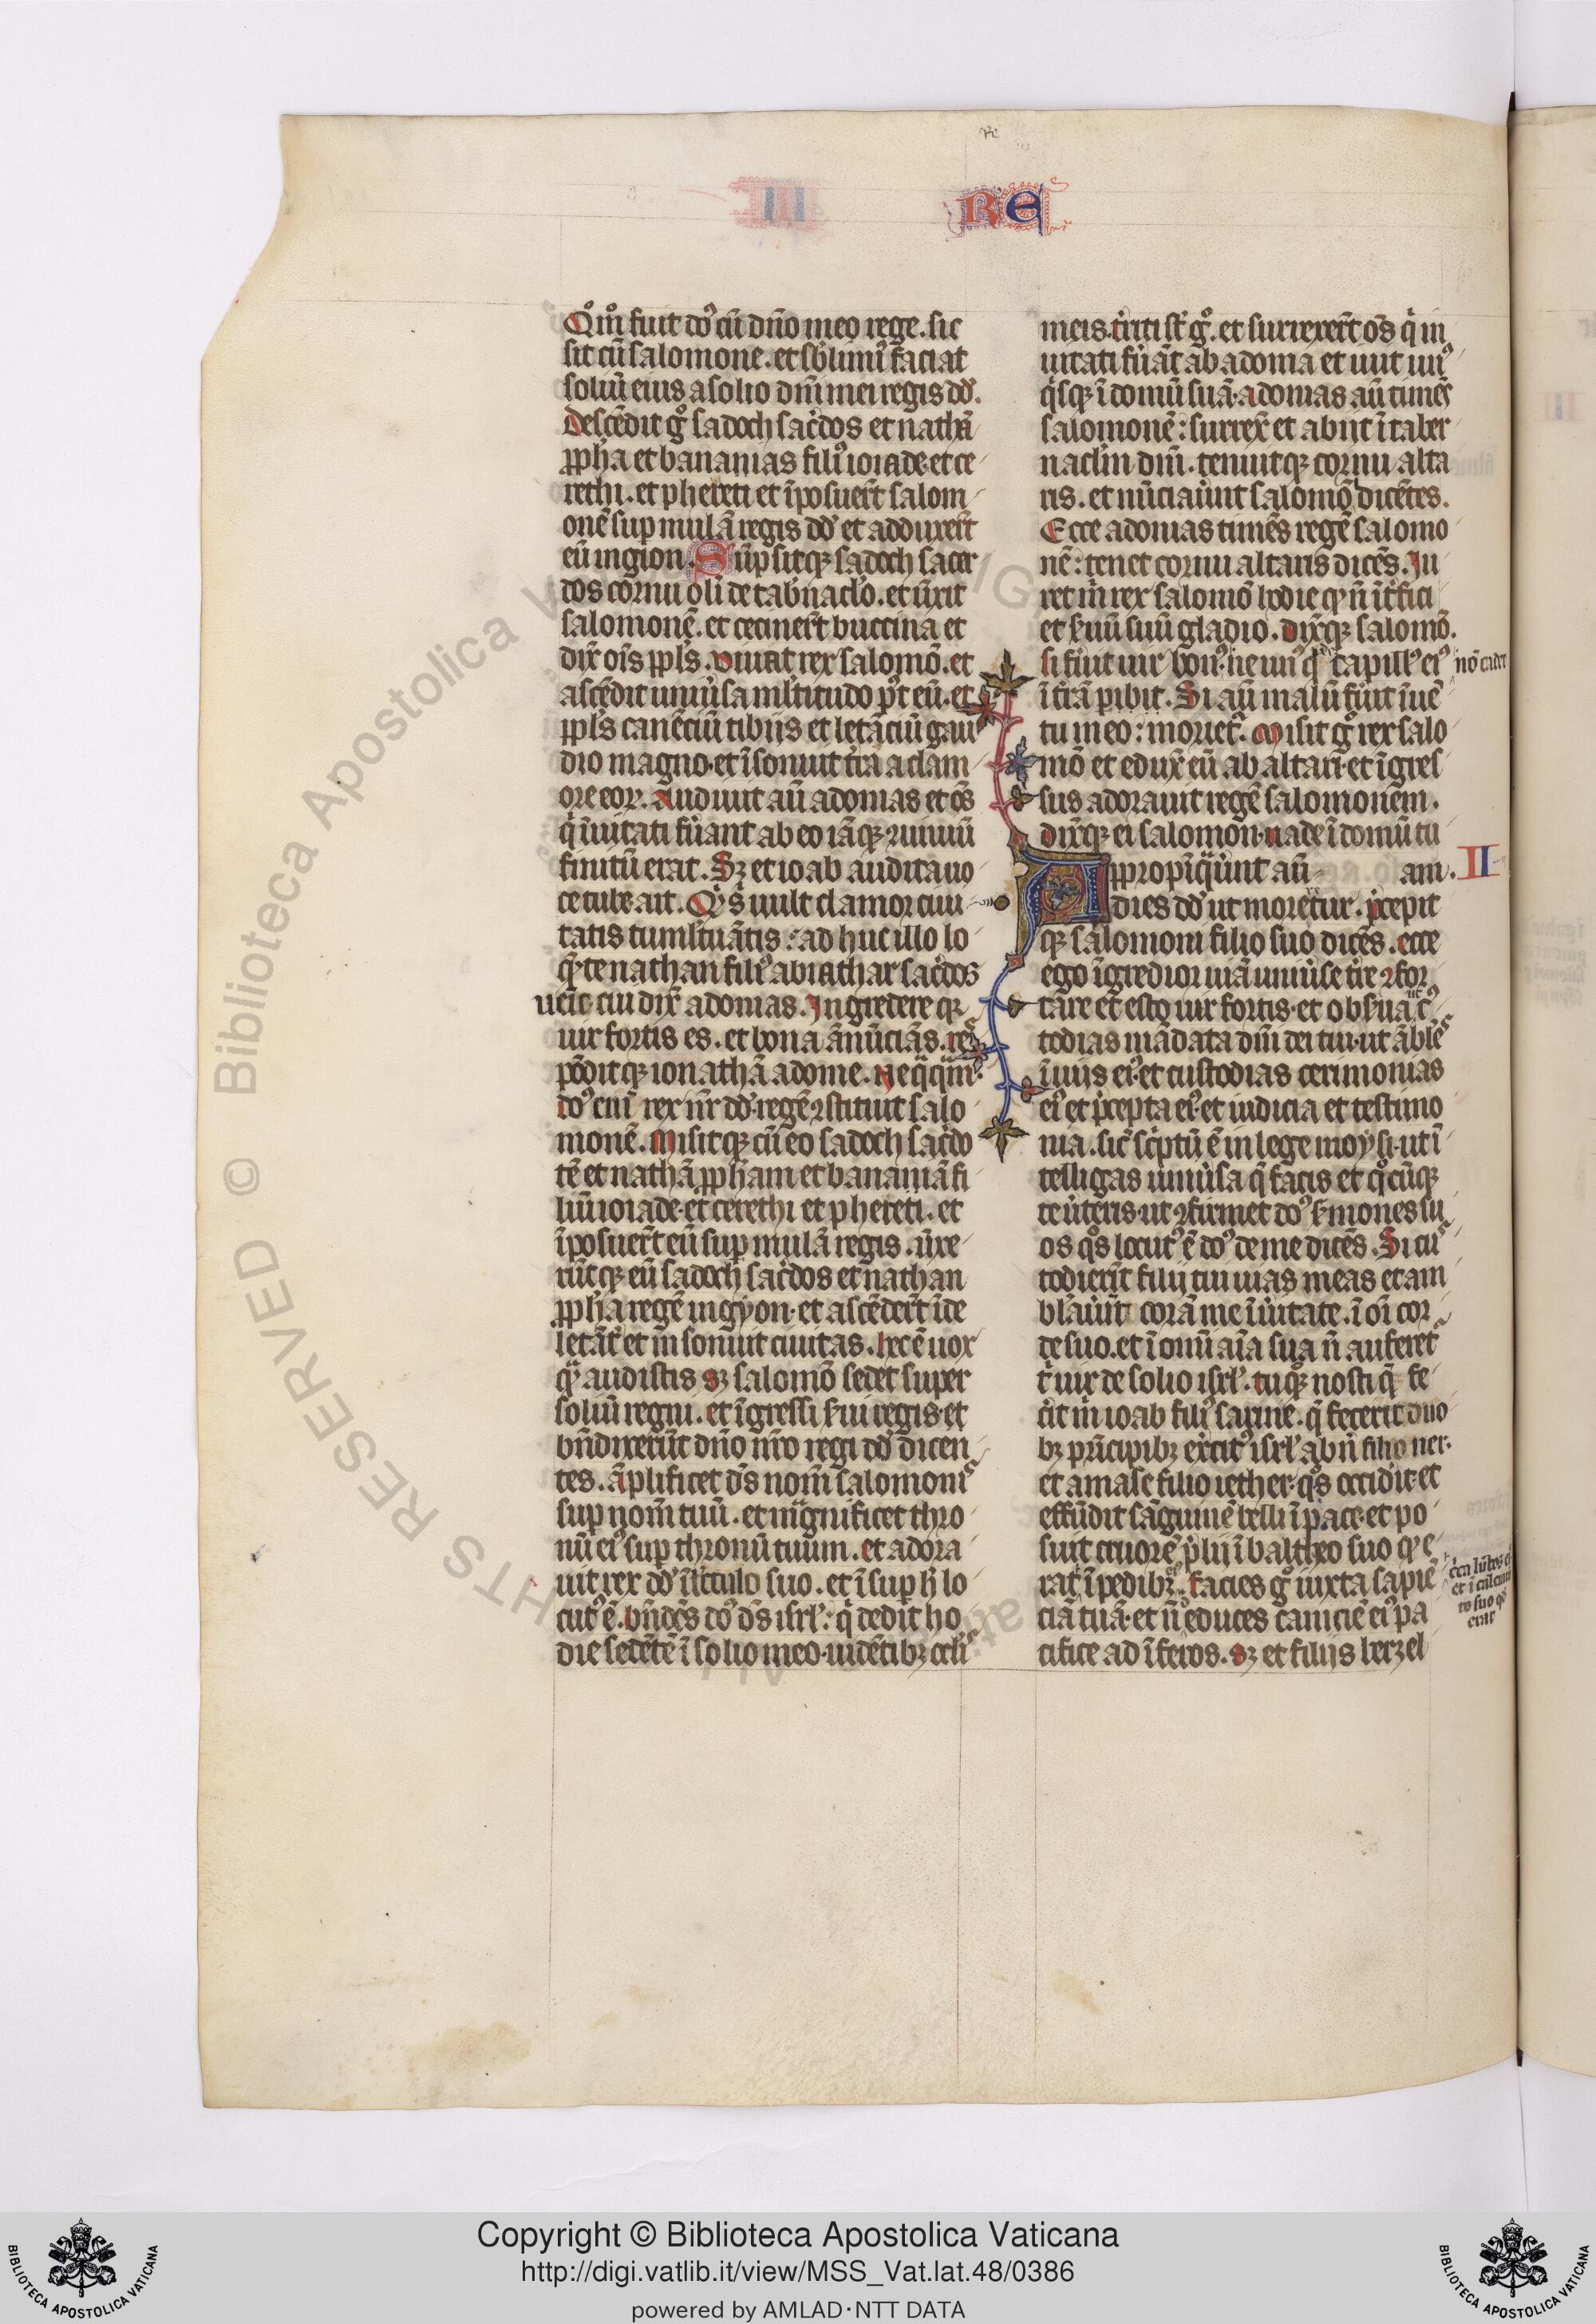 III RE
Qm̊ fuit do᷒ cū dn̄o meo rege. sic
sit cū salomone. et sb̓limi᷒ faciat
soliū eius a solio dn̄i mei regis dd̓.
Descēdit gͦ sadoch sac̓dos et nathā
ꝓpha et bananias fili᷒ ioiade. et ce
rethi. et phereti et īposuer̄t salom
onē sup mulā regis dd̓ et adduxer̄t
eū in gion. Sūpsitqꝫ sadoch sacer
dos cornu oli de tab̓naclo. et ūxit
salomonē. et ceciner̄t buccina et
dix̄ oīs ppl̓s. viuat rex salomō. et
ascēdit uniu̓sa ml̓titudo p̓t eū. et
ppl̓s canēciū tibijs et letāciū gau
dio magno. et īsonuit t̓ra a clam
ore eoꝝ. Audiuit aū adonias et oēs
qͥ īuitati fu̓ant ab eo iāqꝫ ꝯuiuiū
finitū erat. Sꝫ et ioab audita uo
ce tube ait. Qͥs uult clamor ciui
tatis tumltuātis: ad huc illo lo
q̄te nathan fili᷒ abiathar sac̓dos
uēit cui dix̄ adonias. Ingredere qꝛ
uir fortis es. et bona ānūciās. res
pōditqꝫ ionathā adonie. Neqͣqͣm.
do᷒ enī rex nr̄ dd̓. regē ꝯstituit salo
monē. Misitqꝫ cū eo sadoch sac̓do
tē et nathā ꝓpham et bananiā fi
liū ioiade. et cerethi et phereti. et
īposuer̄t eū sup mulā regis. ūxe
rūtqꝫ eū sadoch sac̓dos et nathan
ꝓpha regē in gyon. et ascēder̄t īde
letāt̓ et in sonuit ciuitas. hec ē uox
qͣ audistis sꝫ salomō sedet super
soliū regni. et īgressi s̓ui regis. et
bn̄dixerūt dn̄o nr̄o regi dd̓ dicen
tes. āplificet ds̄ nom̄ salomonis
sup nom̄ tuū. et mgͣnificet thro
nū ei᷒ sup thronū tuum. et adora
uit rex dd̓ ī lc̄tulo suo. et ī sup h̓ lo
cut᷒ ē. bn̄dcs̄ do᷒ ds̄ isrl̓. qͥ dedit ho
die sedētē ī solio meo. uidētibꝫ oclis
meis. t̓riti st̄ gͦ. et surrexer̄t oēs qͥ in
uitati fu̓āt ab adonia et iuit un᷒
qͥsqꝫ ī domū suā. adonias aū timēs
salomonē: surrex̄ et abijt ī taber
naclm̄ dn̄i. tenuitqꝫ cornu alta
ris. et nūciau̓unt salomō dicētes.
Ecce adonias timēs regē salomo
nē: tenet cornu altaris dicēs. Iu
ret m̓ rex salomō hodie qꝙ n̄ īt̓fici
et s̓uū suū gladio. dix̄qꝫ salomō.
si fu̓it uir bon᷒. ne un᷒ qͥdē capill᷒ ei᷒
nō cadet
ī t̓rā ꝑibit. Si aū malū fu̓it īuē
tū ī eo: moriet̓. Misit gͦ rex salo
mō et edux̄ eū ab altari. et īgres
sus adorauit regē salomonem.
dix̄qꝫ ei salomon. uade ī domū tu
am. II
Appropīqͣu̓unt aū
dies dd̓ ut moretur. p̄cepit
qꝫ salomoni filio suo dicēs. ecce
ego īgredior uiā uniu̓se t̓re ꝯfor
tare et esto uir fortis. et obs̓ua ut c᷒
todias mādata dn̄i dei tui. ut āble᷒
ī uijs ei᷒. et custodias cerimonias
ei᷒ et p̄cepta ei᷒. et iudicia et testimo
nia. sic̄ sc̓ptū ē in lege moysi. ut ī
telligas uniu̓sa q̄ facis et qͦcūqꝫ
te u̓teris. ut ꝯfirmet do᷒ s̓mones su
os qͦs locut᷒ ē do᷒ de me dicēs. Si cus
todier̄t filij tui uias meas et am
blau̓ūt corā me ī u̓itate. ī oī cor
de suo. et ī omī aīa sua n̄ auferet᷒
t̓ uir de solio isrl̓. tu qꝫ nosti q̄ fe
cit m̓ ioab fili᷒ saruie. q̄ fecerit duo
bꝫ prīcipibꝫ ex̓cit᷒ isrl̓ abn̄ filio ner.
et amase filio iether. qͦs occidit. et
effūdit sāguinē belli ī pace. et po
suit cruorē p̓lij ī baltheo suo qꝙ e
rat ī pedibꝫ ei᷒. facies gͦ iuxta sapiē
c̓ca lūbos ei᷒
et ī calciam̄
to suo qͦd
erat
ciā tuā. et n̄ educes caniciē ei᷒ pa
cifice ad īferos. Sꝫ et filijs berzel
© Biblioteca Apostolica Vaticana
RIGHTS RESERVED
Copyright © Biblioteca Apostolica Vaticana
http://digi.vatlib.it/view/MSS_Vat.lat.48/0386
powered by AMLAD·NTT DATA
BIBLIOTECA APOSTOLICA VATICANA
BIBLIOTECA APOSTOLICA VATICANA